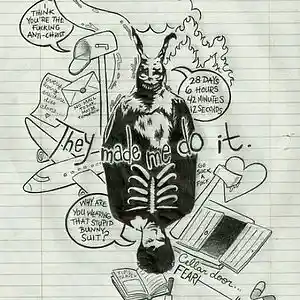 I
THINK
YOU'RE THE
FUCKING
ANTI-CHRIST
28 DAYS
6 HOURS
42 MINUTES
12 SECONDS
They made me do it.
GO
SUCK
A
FUCK
WHY ARE
YOU WEARING
THAT STUPID
BUNNY
SUIT?
Cellar door...
FEAR!